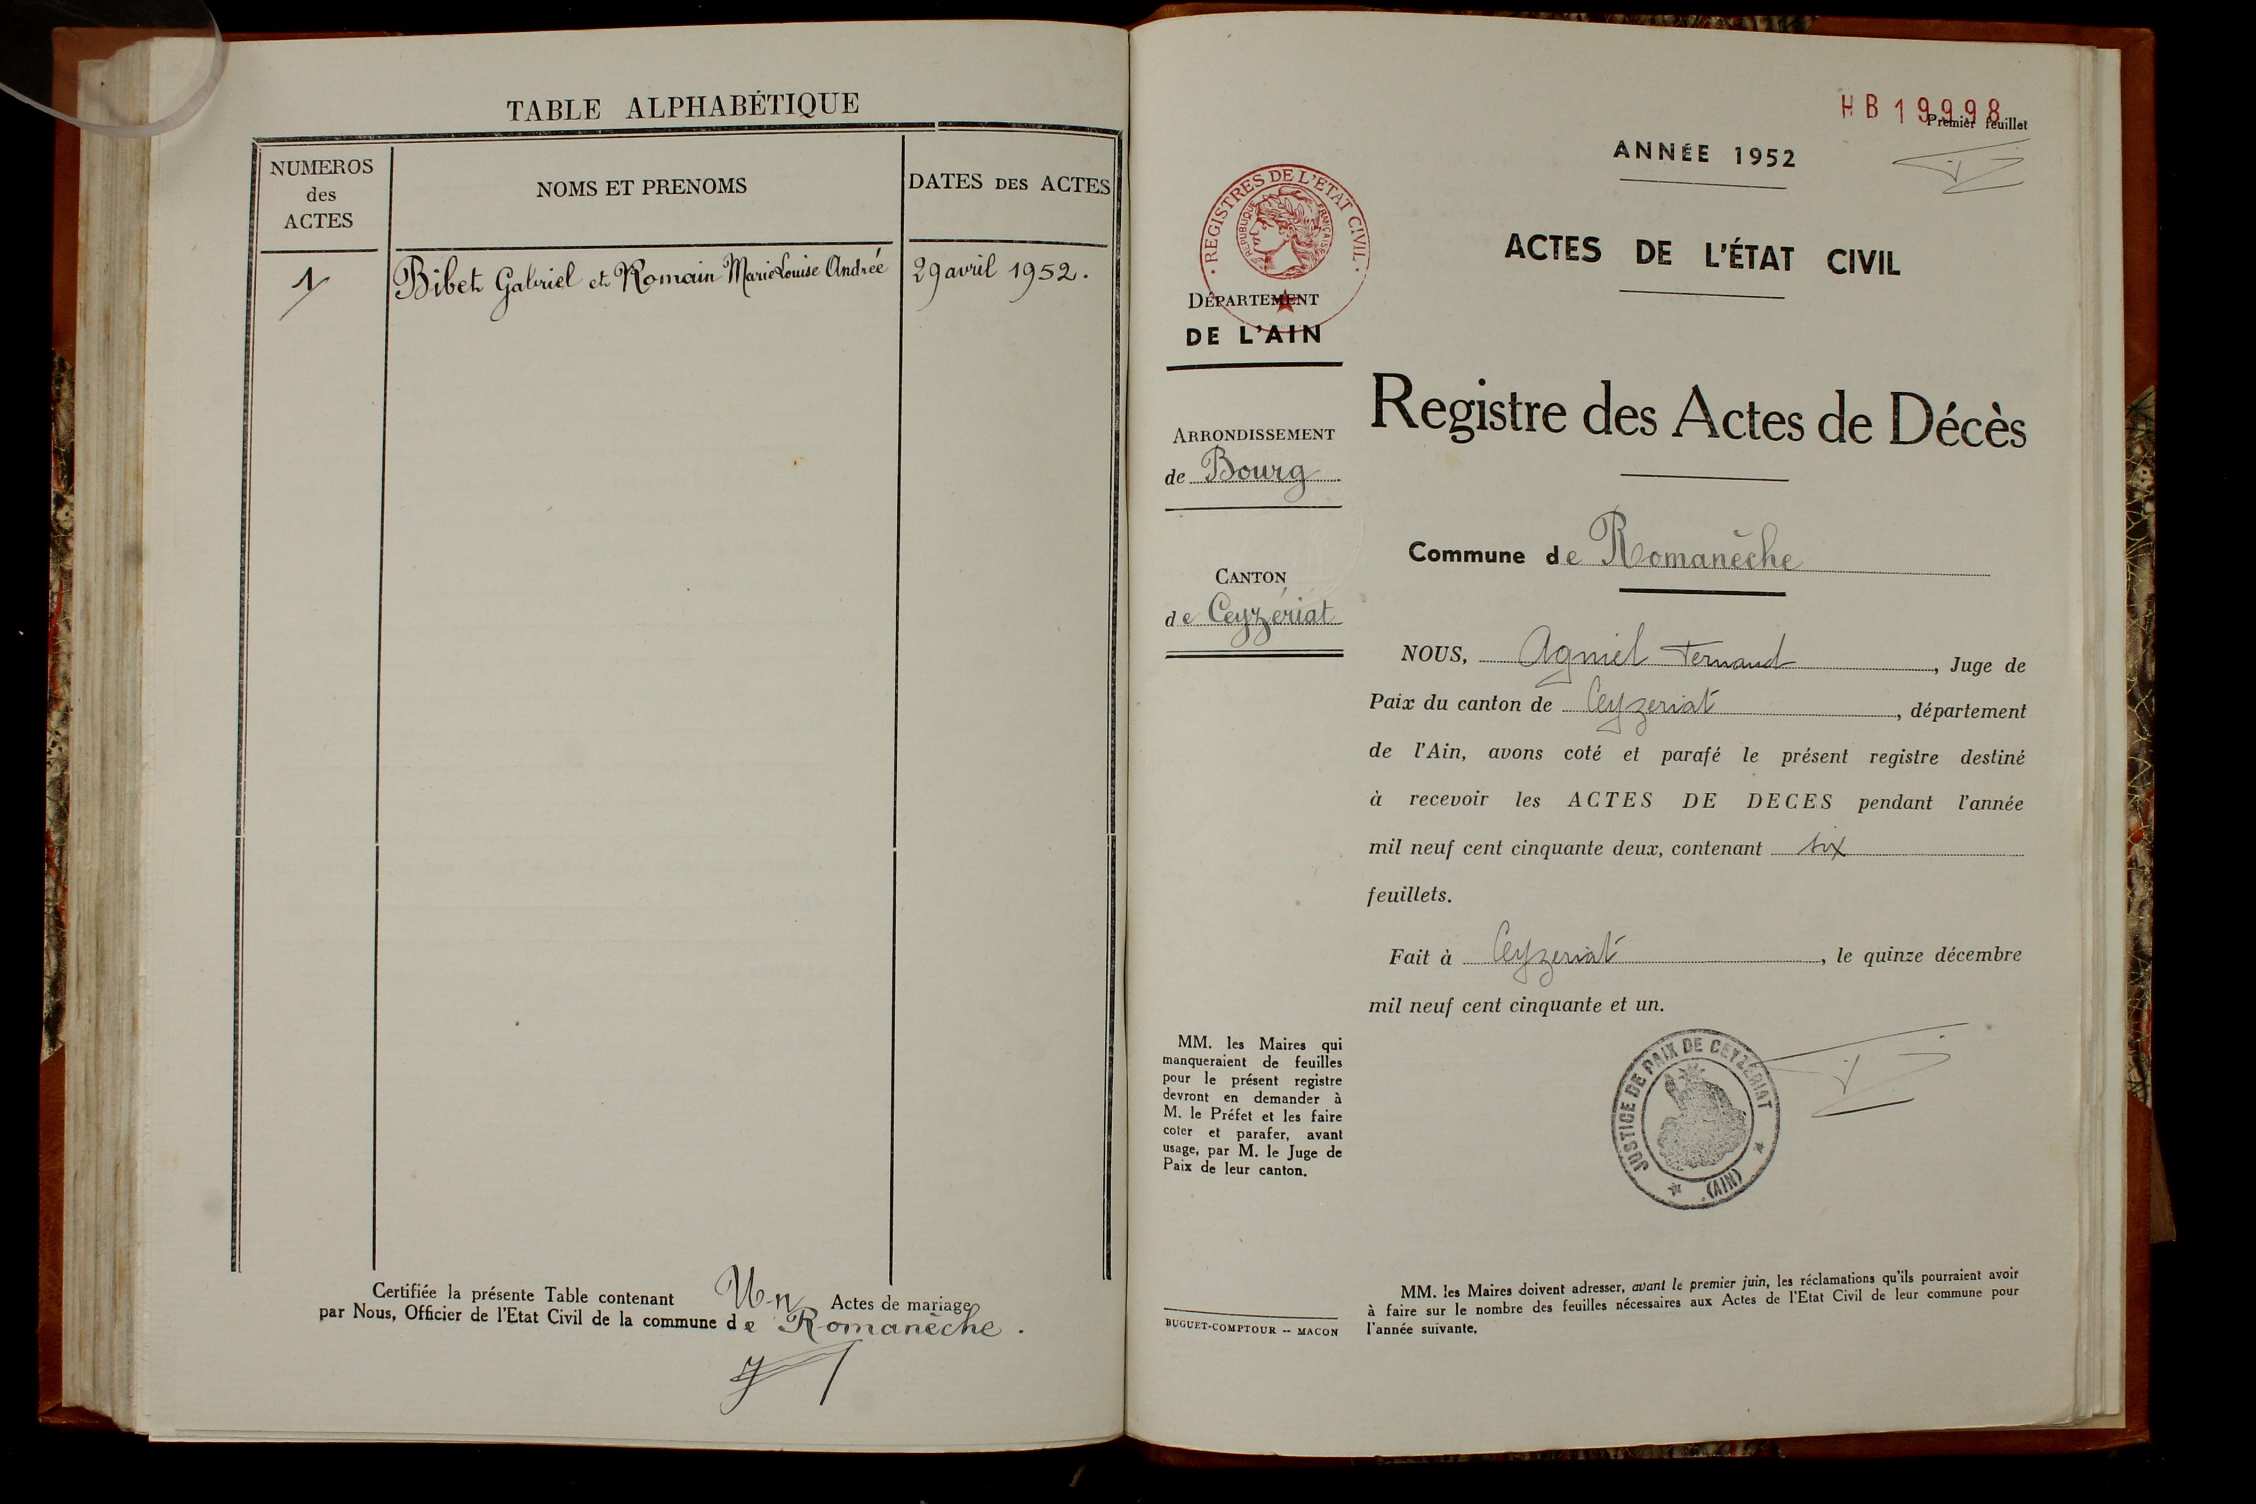 TABLE ALPHABÉTIQUE
NUMEROS
des
ACTES
NOMS ET PRENOMS
DATES DES ACTES
1
Bibet Gabriel et Romain Marie Louise Andrée
29 avril 1952.
Certifiée la présente Table contenant Un Actes de mariage
par Nous, Officier de l'Etat Civil de la commune de Romanèche.
HB 19998
Premier feuillet
ANNÉE 1952
ACTES DE L'ÉTAT CIVIL
· REGISTRES DE L'ETAT CIVIL ·
REPUBLIQUE FRANÇAISE
DÉPARTEMENT
DE L'AIN
ARRONDISSEMENT
de Bourg
CANTON
de Ceyzériat
Registre des Actes de Décès
Commune de Romanèche
NOUS, Agniel Fernand, Juge de
Paix du canton de Ceyzeriat, département
de l'Ain, avons coté et parafé le présent registre destiné
à recevoir les ACTES DE DECES pendant l'année
mil neuf cent cinquante deux, contenant six
feuillets.
Fait à Ceyzeriat, le quinze décembre
mil neuf cent cinquante et un.
JUSTICE DE PAIX DE CEYZÉRIAT
(AIN)
MM. les Maires qui
manqueraient de feuilles
pour le présent registre
devront en demander à
M. le Préfet et les faire
coter et parafer, avant
usage, par M. le Juge de
Paix de leur canton.
BUGUET-COMPTOUR -- MACON
MM. les Maires doivent adresser, avant le premier juin, les réclamations qu'ils pourraient avoir
à faire sur le nombre des feuilles nécessaires aux Actes de l'Etat Civil de leur commune pour
l'année suivante.